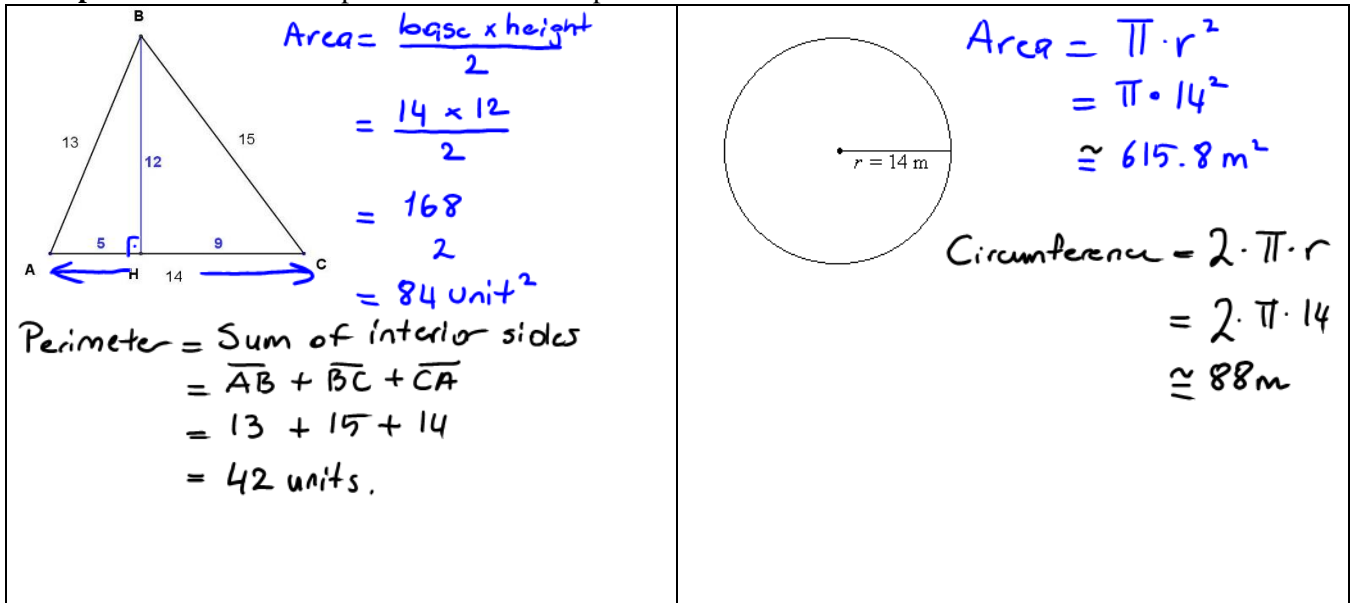 B
13
15
12
5
9
A
H
14
C
Area = base x height
2
= 14 x 12
2
= 168
2
= 84 unit²
Perimeter = Sum of interior sides
= AB + BC + CA
= 13 + 15 + 14
= 42 units.
r = 14 m
Area = π · r²
= π · 14²
≅ 615.8 m²
Circumference = 2 · π · r
= 2 · π · 14
≅ 88m